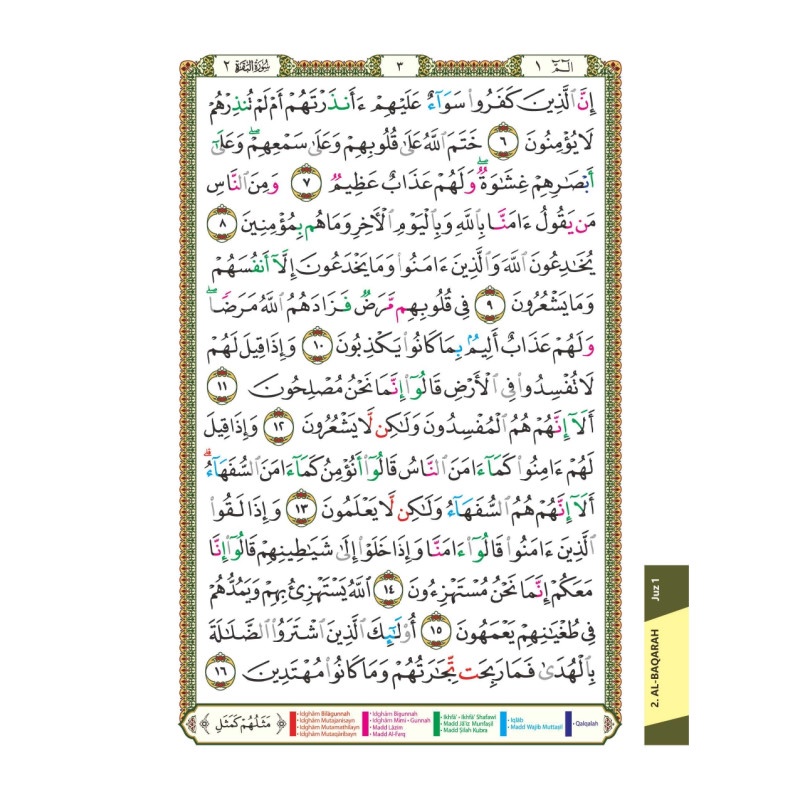 الٓمٓ ١
٣
سُورَةُ الْبَقَرَة ٢
إِنَّ ٱلَّذِينَ كَفَرُوا۟ سَوَآءٌ عَلَيْهِمْ ءَأَنذَرْتَهُمْ أَمْ لَمْ تُنذِرْهُمْ
لَا يُؤْمِنُونَ ٦ خَتَمَ ٱللَّهُ عَلَىٰ قُلُوبِهِمْ وَعَلَىٰ سَمْعِهِمْ ۖ وَعَلَىٰٓ
أَبْصَـٰرِهِمْ غِشَـٰوَةٌ ۖ وَلَهُمْ عَذَابٌ عَظِيمٌ ٧ وَمِنَ ٱلنَّاسِ
مَن يَقُولُ ءَامَنَّا بِٱللَّهِ وَبِٱلْيَوْمِ ٱلْـَٔاخِرِ وَمَا هُم بِمُؤْمِنِينَ ٨
يُخَـٰدِعُونَ ٱللَّهَ وَٱلَّذِينَ ءَامَنُوا۟ وَمَا يَخْدَعُونَ إِلَّآ أَنفُسَهُمْ
وَمَا يَشْعُرُونَ ٩ فِى قُلُوبِهِم مَّرَضٌ فَزَادَهُمُ ٱللَّهُ مَرَضًا ۖ
وَلَهُمْ عَذَابٌ أَلِيمٌۢ بِمَا كَانُوا۟ يَكْذِبُونَ ١٠ وَإِذَا قِيلَ لَهُمْ
لَا تُفْسِدُوا۟ فِى ٱلْأَرْضِ قَالُوٓا۟ إِنَّمَا نَحْنُ مُصْلِحُونَ ١١
أَلَآ إِنَّهُمْ هُمُ ٱلْمُفْسِدُونَ وَلَـٰكِن لَّا يَشْعُرُونَ ١٢ وَإِذَا قِيلَ
لَهُمْ ءَامِنُوا۟ كَمَآ ءَامَنَ ٱلنَّاسُ قَالُوٓا۟ أَنُؤْمِنُ كَمَآ ءَامَنَ ٱلسُّفَهَآءُ ۗ
أَلَآ إِنَّهُمْ هُمُ ٱلسُّفَهَآءُ وَلَـٰكِن لَّا يَعْلَمُونَ ١٣ وَإِذَا لَقُوا۟
ٱلَّذِينَ ءَامَنُوا۟ قَالُوٓا۟ ءَامَنَّا وَإِذَا خَلَوْا۟ إِلَىٰ شَيَـٰطِينِهِمْ قَالُوٓا۟ إِنَّا
مَعَكُمْ إِنَّمَا نَحْنُ مُسْتَهْزِءُونَ ١٤ ٱللَّهُ يَسْتَهْزِئُ بِهِمْ وَيَمُدُّهُمْ
فِى طُغْيَـٰنِهِمْ يَعْمَهُونَ ١٥ أُو۟لَـٰٓئِكَ ٱلَّذِينَ ٱشْتَرَوُا۟ ٱلضَّلَـٰلَةَ
بِٱلْهُدَىٰ فَمَا رَبِحَت تِّجَـٰرَتُهُمْ وَمَا كَانُوا۟ مُهْتَدِينَ ١٦
مَثَلُهُمْ كَمَثَلِ
• Idghām Bilāgunnah
• Idghām Mutajānisayn
• Idghām Mutamathilayn
• Idghām Mutaqāribayn
• Idghām Bigunnah
• Idghām Mimi • Gunnah
• Madd Lāzim
• Madd Al-Farq
• Ikhfā' • Ikhfā' Shafawī
• Madd Jā'iz Munfaṣil
• Madd Ṣilah Kubra
• Iqlāb
• Madd Wajib Muttaṣil
• Qalqalah
2. AL-BAQARAH
Juz 1